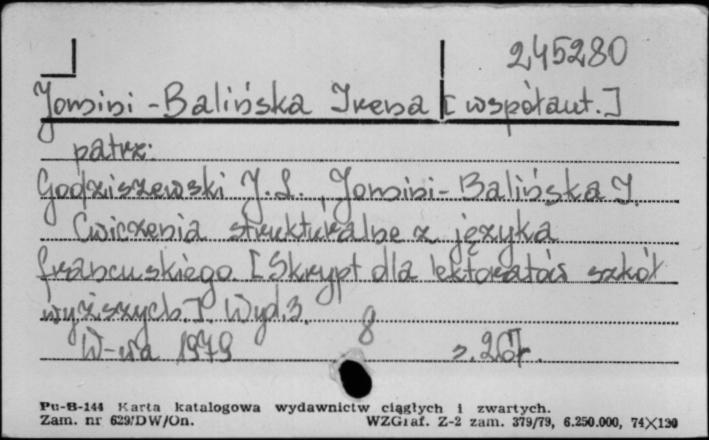 245280
Jomini-Balińska Irena [współaut.]
patrz:
Godziszewski J.S., Jomini-Balińska I.
Ćwiczenia strukturalne z języka
francuskiego. [Skrypt dla lektoratów szkół
wyższych.] Wyd. 3.
W-wa 1979 8 s. 261.
Pu-B-144 Karta katalogowa wydawnictw ciągłych i zwartych.
Zam. nr 629/DW/On. WZGraf. Z-2 zam. 379/79, 6.250.000, 74×120